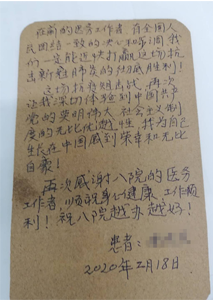 在前的医务工作者，首全国人
民团结一致的决心和
一定能迅快打赢这场抗
击新冠肺炎的彻底胜利！
这场抗击的战，再次
让我深切体验到中国共产
党的英明伟大 社会主义制
度的无比优越性，我为自己
生长在中国感到荣幸和无比
自豪！
再次感谢八院的医务
工作者，顺祝身心健康 工作顺
利！祝八院越办越好！
患者：
2020年2月18日